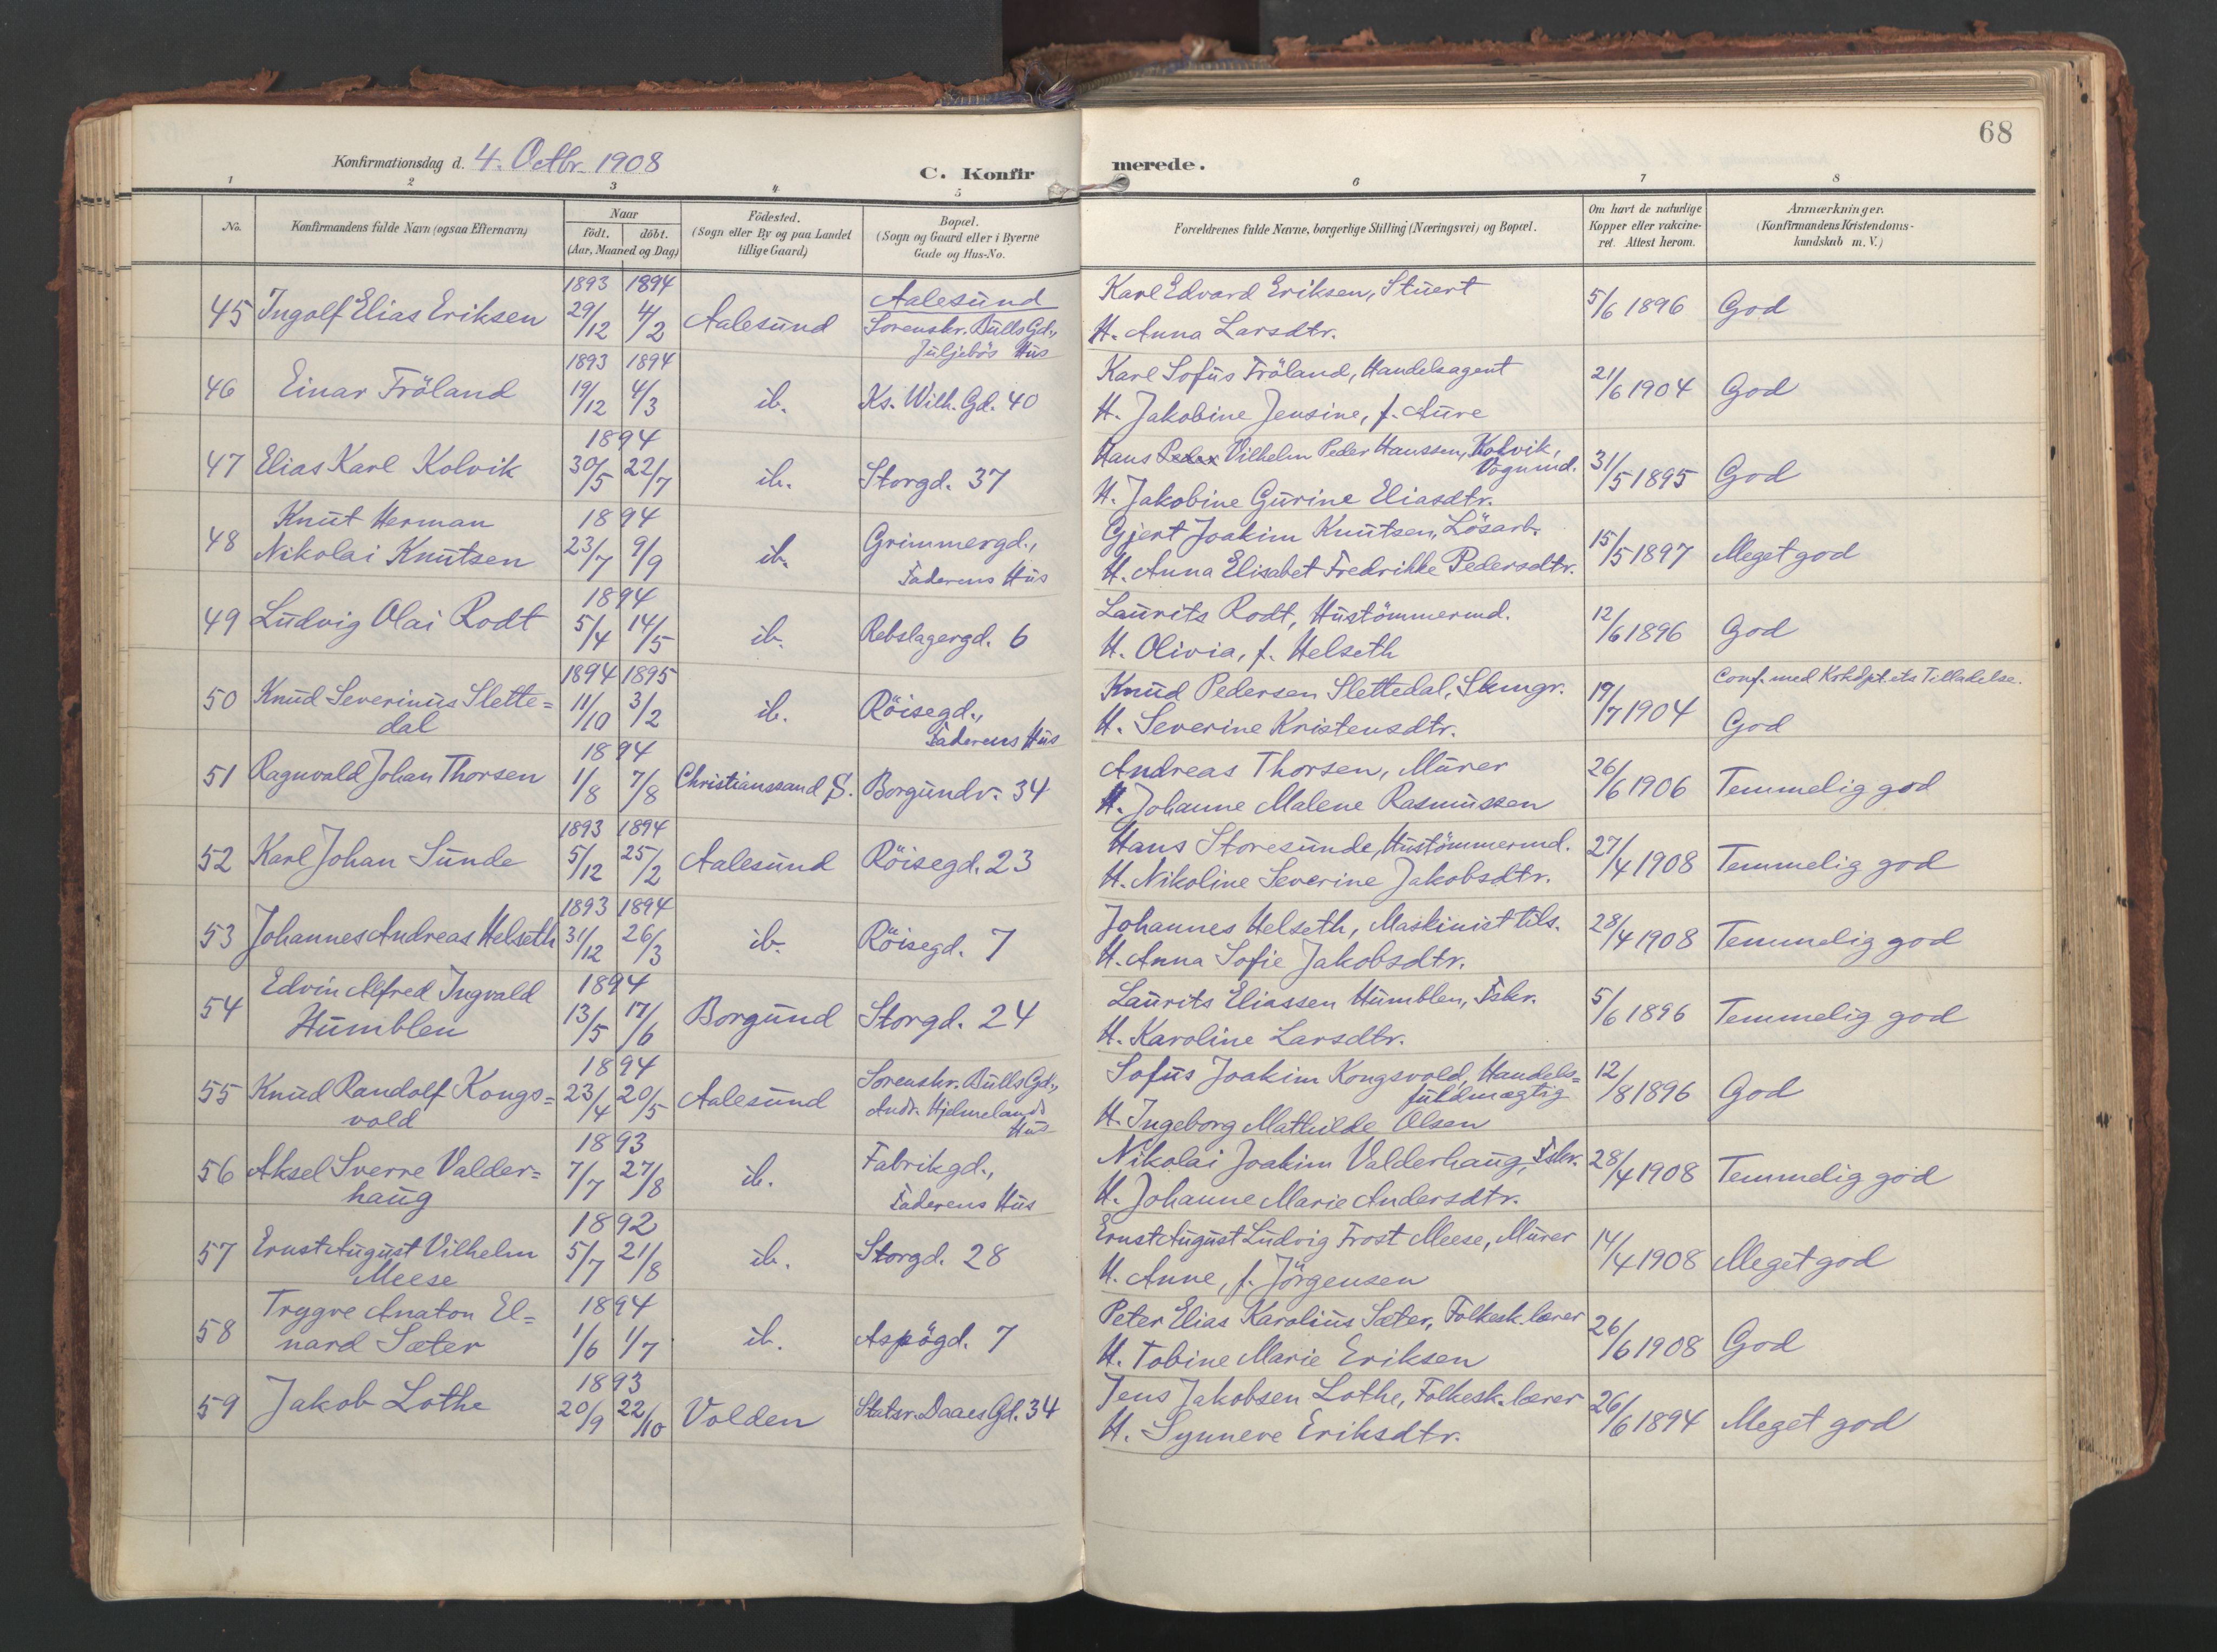 68
Konfirmationsdag d. 4. Octbr. 1908
C. Konfirmerede.
1 2 3 4 5 6 7 8
No.
Konfirmandens fulde Navn (ogsaa Efternavn)
Naar
födt. döbt.
(Aar, Maaned og Dag)
Födested.
(Sogn eller By og paa Landet
tillige Gaard)
Bopæl.
(Sogn og Gaard eller i Byerne
Gade og Hus-No.
Forældrenes fulde Navne, borgerlige Stilling (Næringsvei) og Bopæl.
Om havt de naturlige
Kopper eller vakcine-
ret. Attest herom.
Anmærkninger.
(Konfirmandens Kristendoms-
kundskab m. V.)
1893 1894
45 Ingolf Elias Eriksen 29/12 4/2 Aalesund
Aalesund
Sorenskr. Bulls Gd.,
Juljebös Hus
Karl Edvard Eriksen, Stuert
H. Anna Larsdtr.
5/6 1896 God
1893 1894
46 Einar Fröland 19/12 4/3 ib. Ks. Wilh. Gd. 40
Karl Sofus Fröland, Handelsagent
H. Jakobine Jensine, f. Aure
21/6 1904 God
1894
47 Elias Karl Kolvik 30/5 22/7 ib. Storgd. 37
Hans Peder Vilhelm Peder Hanssen, Kolvik,
Vognmd.
H. Jakobine Gurine Eliasdtr.
31/5 1895 God
1894
48 Knut Herman
Nikolai Knutsen 23/7 9/9 ib.
Grimmergd.,
Faderens Hus
Gjert Joakim Knutsen, Lösarb.
H. Anna Elisabet Fredrikke Pedersdtr.
15/5 1897 Meget god
1894
49 Ludvig Olai Rodt 5/4 14/5 ib. Rebslagergd. 6
Laurits Rodt, Hustömmermd.
H. Olivia, f. Helseth
12/6 1896 God
1894 1895
50 Knud Severinus Slette=
dal 11/10 3/2 ib.
Röisegd.,
Faderens Hus
Knud Pedersen Slettedal, Stenngr.
H. Severine Kristensdtr.
19/7 1904
Conf. med Krkdpt.ets Tilladelse.
God
1894
51 Ragnvald Johan Thorsen 1/8 7/8 Christianssand S. Borgundv. 34
Andreas Thorsen, Murer
H. Johanne Malene Rasmussen
26/6 1906 Temmelig god
1893 1894
52 Karl Johan Sunde 5/12 25/2 Aalesund Röisegd. 23
Hans Storesunde, Hustömmermd.
H. Nikoline Severine Jakobsdtr.
27/4 1908 Temmelig god
1893 1894
53 Johannes Andreas Helseth 31/12 26/3 ib. Röisegd. 7
Johannes Helseth, Maskinist tils.
H. Anna Sofie Jakobsdtr.
28/4 1908 Temmelig god
1894
54 Edvin Alfred Ingvald
Humblen 13/5 17/6 Borgund Storgd. 24
Laurits Eliassen Humblen, Fskr.
H. Karoline Larsdtr.
5/6 1896 Temmelig god
1894
55 Knud Randolf Kongs=
vold 23/4 20/5 Aalesund
Sorenskr. Bulls Gd.,
Andr. Hjelmelands
Hus
Sofus Joakim Kongsvold, Handels=
fuldmægtig
H. Ingeborg Mathilde Olsen
12/8 1896 God
1893
56 Aksel Sverre Valder=
haug 7/7 27/8 ib.
Fabrikgd.,
Faderens Hus
Nikolai Joakim Valderhaug, Fskr.
H. Johanne Marie Andersdtr.
28/4 1908 Temmelig god
1892
57 Ernst August Vilhelm
Meese 5/7 21/8 ib. Storgd. 28
Ernst August Ludvig Frost Meese, Murer
H. Anne, f. Jörgensen
14/4 1908 Meget god
1894
58 Trygve Anaton El=
nard Sæter 1/6 1/7 ib. Aspögd. 7
Peter Elias Karolius Sæter, Folkesk.lærer
H. Tobine Marie Eriksen
26/6 1908 God
1893
59 Jakob Lothe 20/9 22/10 Volden Statsr. Daaes Gd. 34
Jens Jakobsen Lothe, Folkesk.lærer
H. Synneve Eriksdtr.
26/6 1894 Meget god